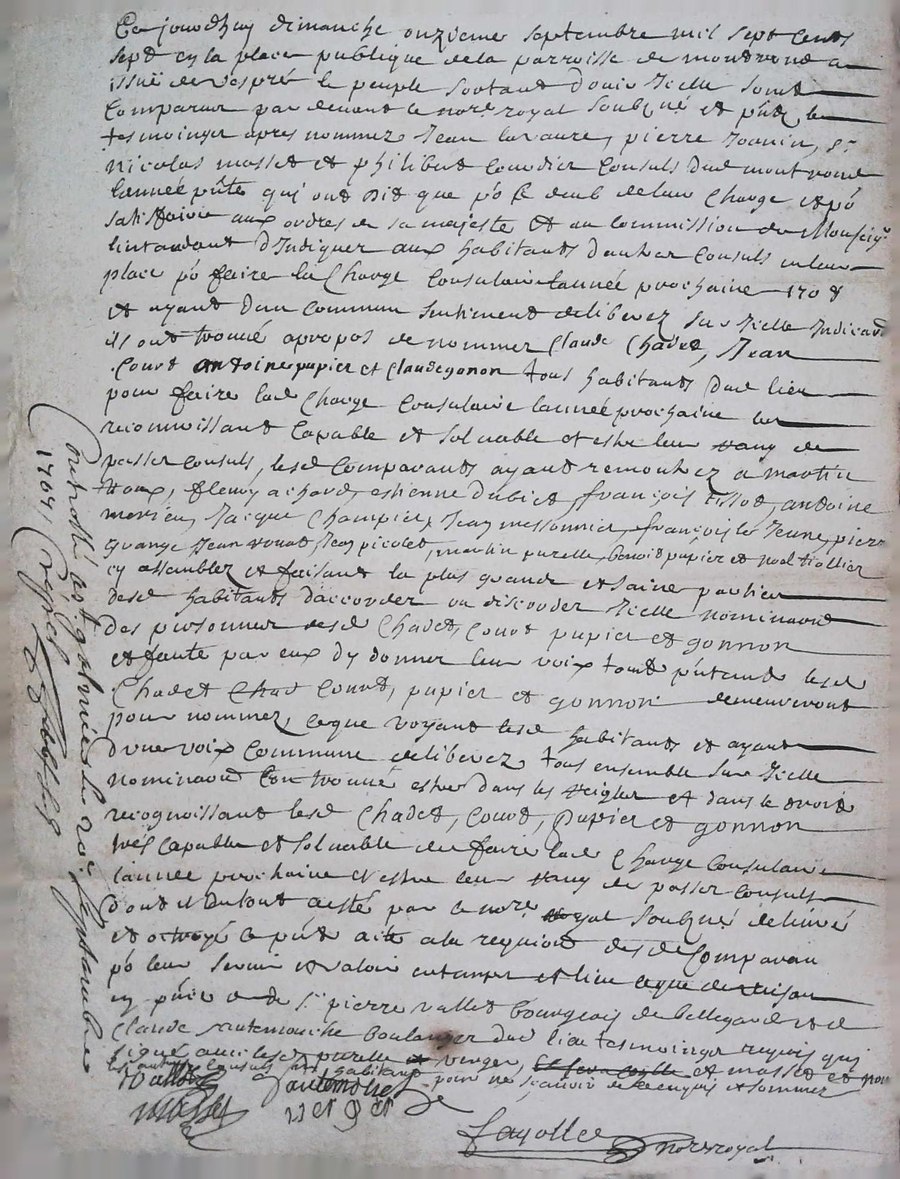 Ce jourdhuy dimanche onzieme septembre mil sept cents
sept en la place publique de la parroisse de montrond a
issue de vespré le peuple sortant d'ouir Icelle sont
Comparus par devant le nore royal soubzné et pnts les
tesmoings apres nommez Jean lavaure, pierre Jоanin,
nicolas masset et philibert Consuls dud montrond
lannée pnte qui ont dit que po le deub de leur Charge et po
satisfaire aux ordres de sa majeste et au commission de Monseigr
lintandant d'Indiquer aux habitants d'autres Consuls en leur
place po faire la Charge Consulaire lannée prochaine 1708
et ayant dun commun sentiment deliberez sur Icelle
ils ont trouvé apropos de nommer Claude Chadet, Jean
Court antoine pupier et Claude gonon tous habitants dud lieu
pour faire lad Charge Consulaire lannée prochaine les
recognoissant Capable et solvable et estre leur rang de
passer Consuls, lesd Comparants ayant remontrez a martin
fleury achard, estienne dubiet, françois tissot, antoine
Jacque Champier, Jean messonnier, françois le Jeune, pierre
grange Jean Jean picolet, martin purelle, benoit pupier et noel
en assemblez et faisant la plus grande et saine partie
desd habitants d'accorder ou discorder Icelle nomination
des personnes desd Chadet, Court pupier et gonnon
et faute par eux d'y donner leur voix lesd
Chadet Court, pupier et gonnon demeureront
pour nommez, ce que voyant lesd habitants et ayant
d'une voix Commune deliberez tous ensemble sur Icelle
nomination lont trouvé estre dans les reigles et dans le droit
recognoissant lesd Chadet, Court, pupier et gonnon
tres capable et solvable de faire lad Charge Consulaire
lannée prochaine et estre leur rang de passer Consuls
dont et du tout acte par le nore royal soubzné
et octroyé le pnt acte a la requision desd Comparan
po leur servir et valoir en temps et lieu ce que de raison
en pnce de sr pierre vallet bourgeois de bellegarde et de
Claude matemouche boulanger dud lieu tesmoings requis qui
signé avec lesd purelle verger, et masset et non
les autres Consuls habitants pour ne scavoir de ce enquis et sommez
vallet
masset
verger
fayolle
nore royal
Controllé a st galmier le septambre
1707